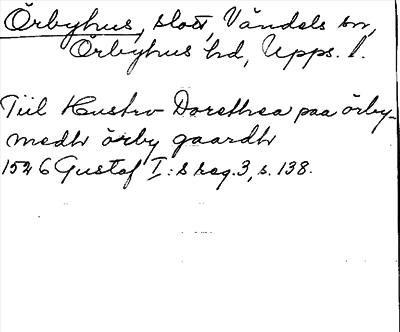 Örbyhus, slott, Vändels sn,
Örbyhus hd, Upps. l.
Tiil Hustrv Dorethea paa örby-
medh örby gaardh
1526 Gustaf I:s reg. 3, s. 138.